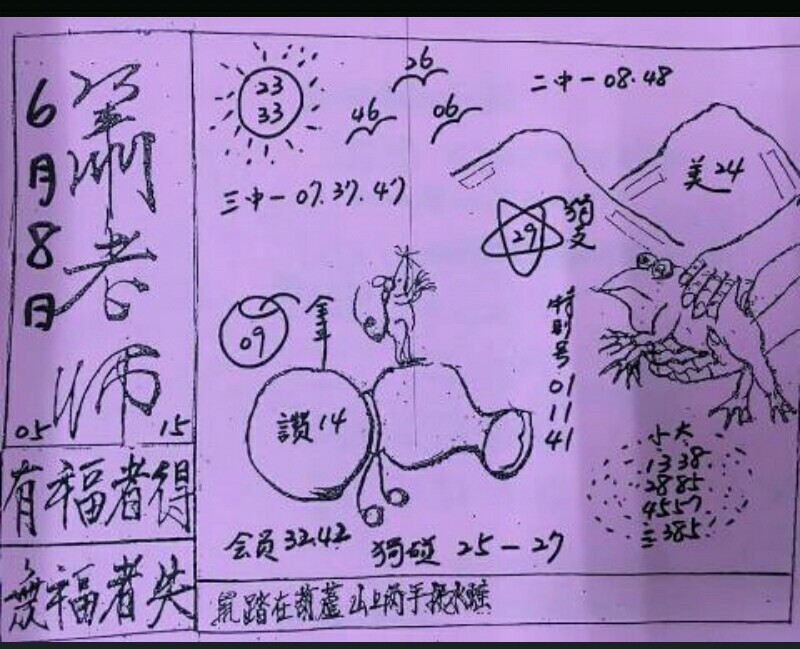 6月8日
蕭老师
05 15
有福者得
無福者失
23
33
26
46
06
二中一08.48
三中一07.37.47
美24
29
独支
09
全年
讃14
特别号
01
11
41
小大
1338
2885
4557
三385
会员32.42
独碰 25-27
鼠踏在葫蘆山上两手提水蛙